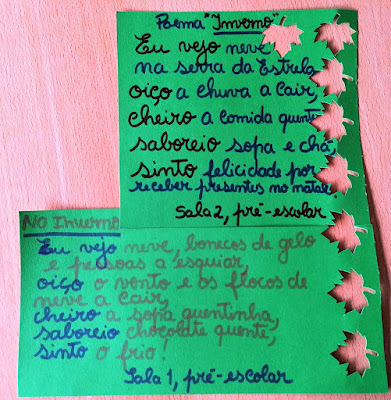 Poema "Inverno"
Eu vejo neve
na serra da Estrela
oiço a chuva a cair,
cheiro a comida quente
saboreio sopa e chá,
sinto felicidade por
receber presentes no natal.
Sala 2, pré-escolar
No Inverno
Eu vejo neve, bonecos de gelo
e pessoas a esquiar,
oiço o vento e os flocos de
neve a cair,
cheiro a sopa quentinha,
saboreio chocolate quente,
sinto o frio!
Sala 1, pré-escolar